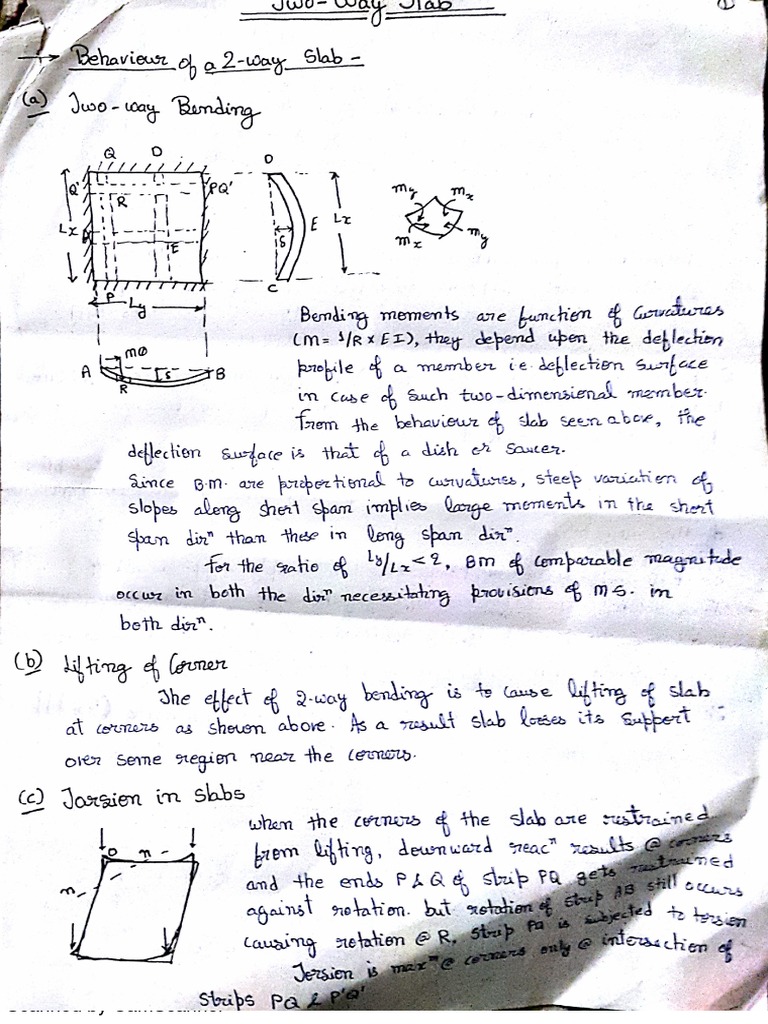 Two-Way Slab
①
Behaviour of a 2-way Slab -
(a) Two-way Bending
Q D
Q' R PQ'
Lx
E
P
Ly
D
E
δ
C
Lx
my mx
mx my
mθ
A δ B
R
Bending moments are function of Curvatures
(M = 1/R x EI), they depend upon the deflection
profile of a member i.e. deflection surface
in case of such two-dimensional member.
From the behaviour of slab seen above, the
deflection surface is that of a dish or saucer.
Since B.M. are proportional to curvatures, steep variation of
slopes along short span implies large moments in the short
span dirⁿ than these in long span dirⁿ.
For the ratio of Ly/Lx < 2, BM of comparable magnitude
occur in both the dirⁿ necessitating provisions of MS. in
both dirⁿ.
(b) Lifting of Corner
The effect of 2-way bending is to cause lifting of slab
at corners as shown above. As a result slab losses its support
over some region near the corners.
(c) Torsion in slabs
when the corners of the slab are restrained
from lifting, downward reacⁿ results @ corners
and the ends P & Q of strip PQ gets restrained
against rotation. but rotation of strip AB still occurs
causing rotation @ R. Strip PQ is subjected to torsion
Torsion is maxᵐ @ corners only @ intersection of
strips PQ & P'Q'
O n
n
Scanned by CamScanner